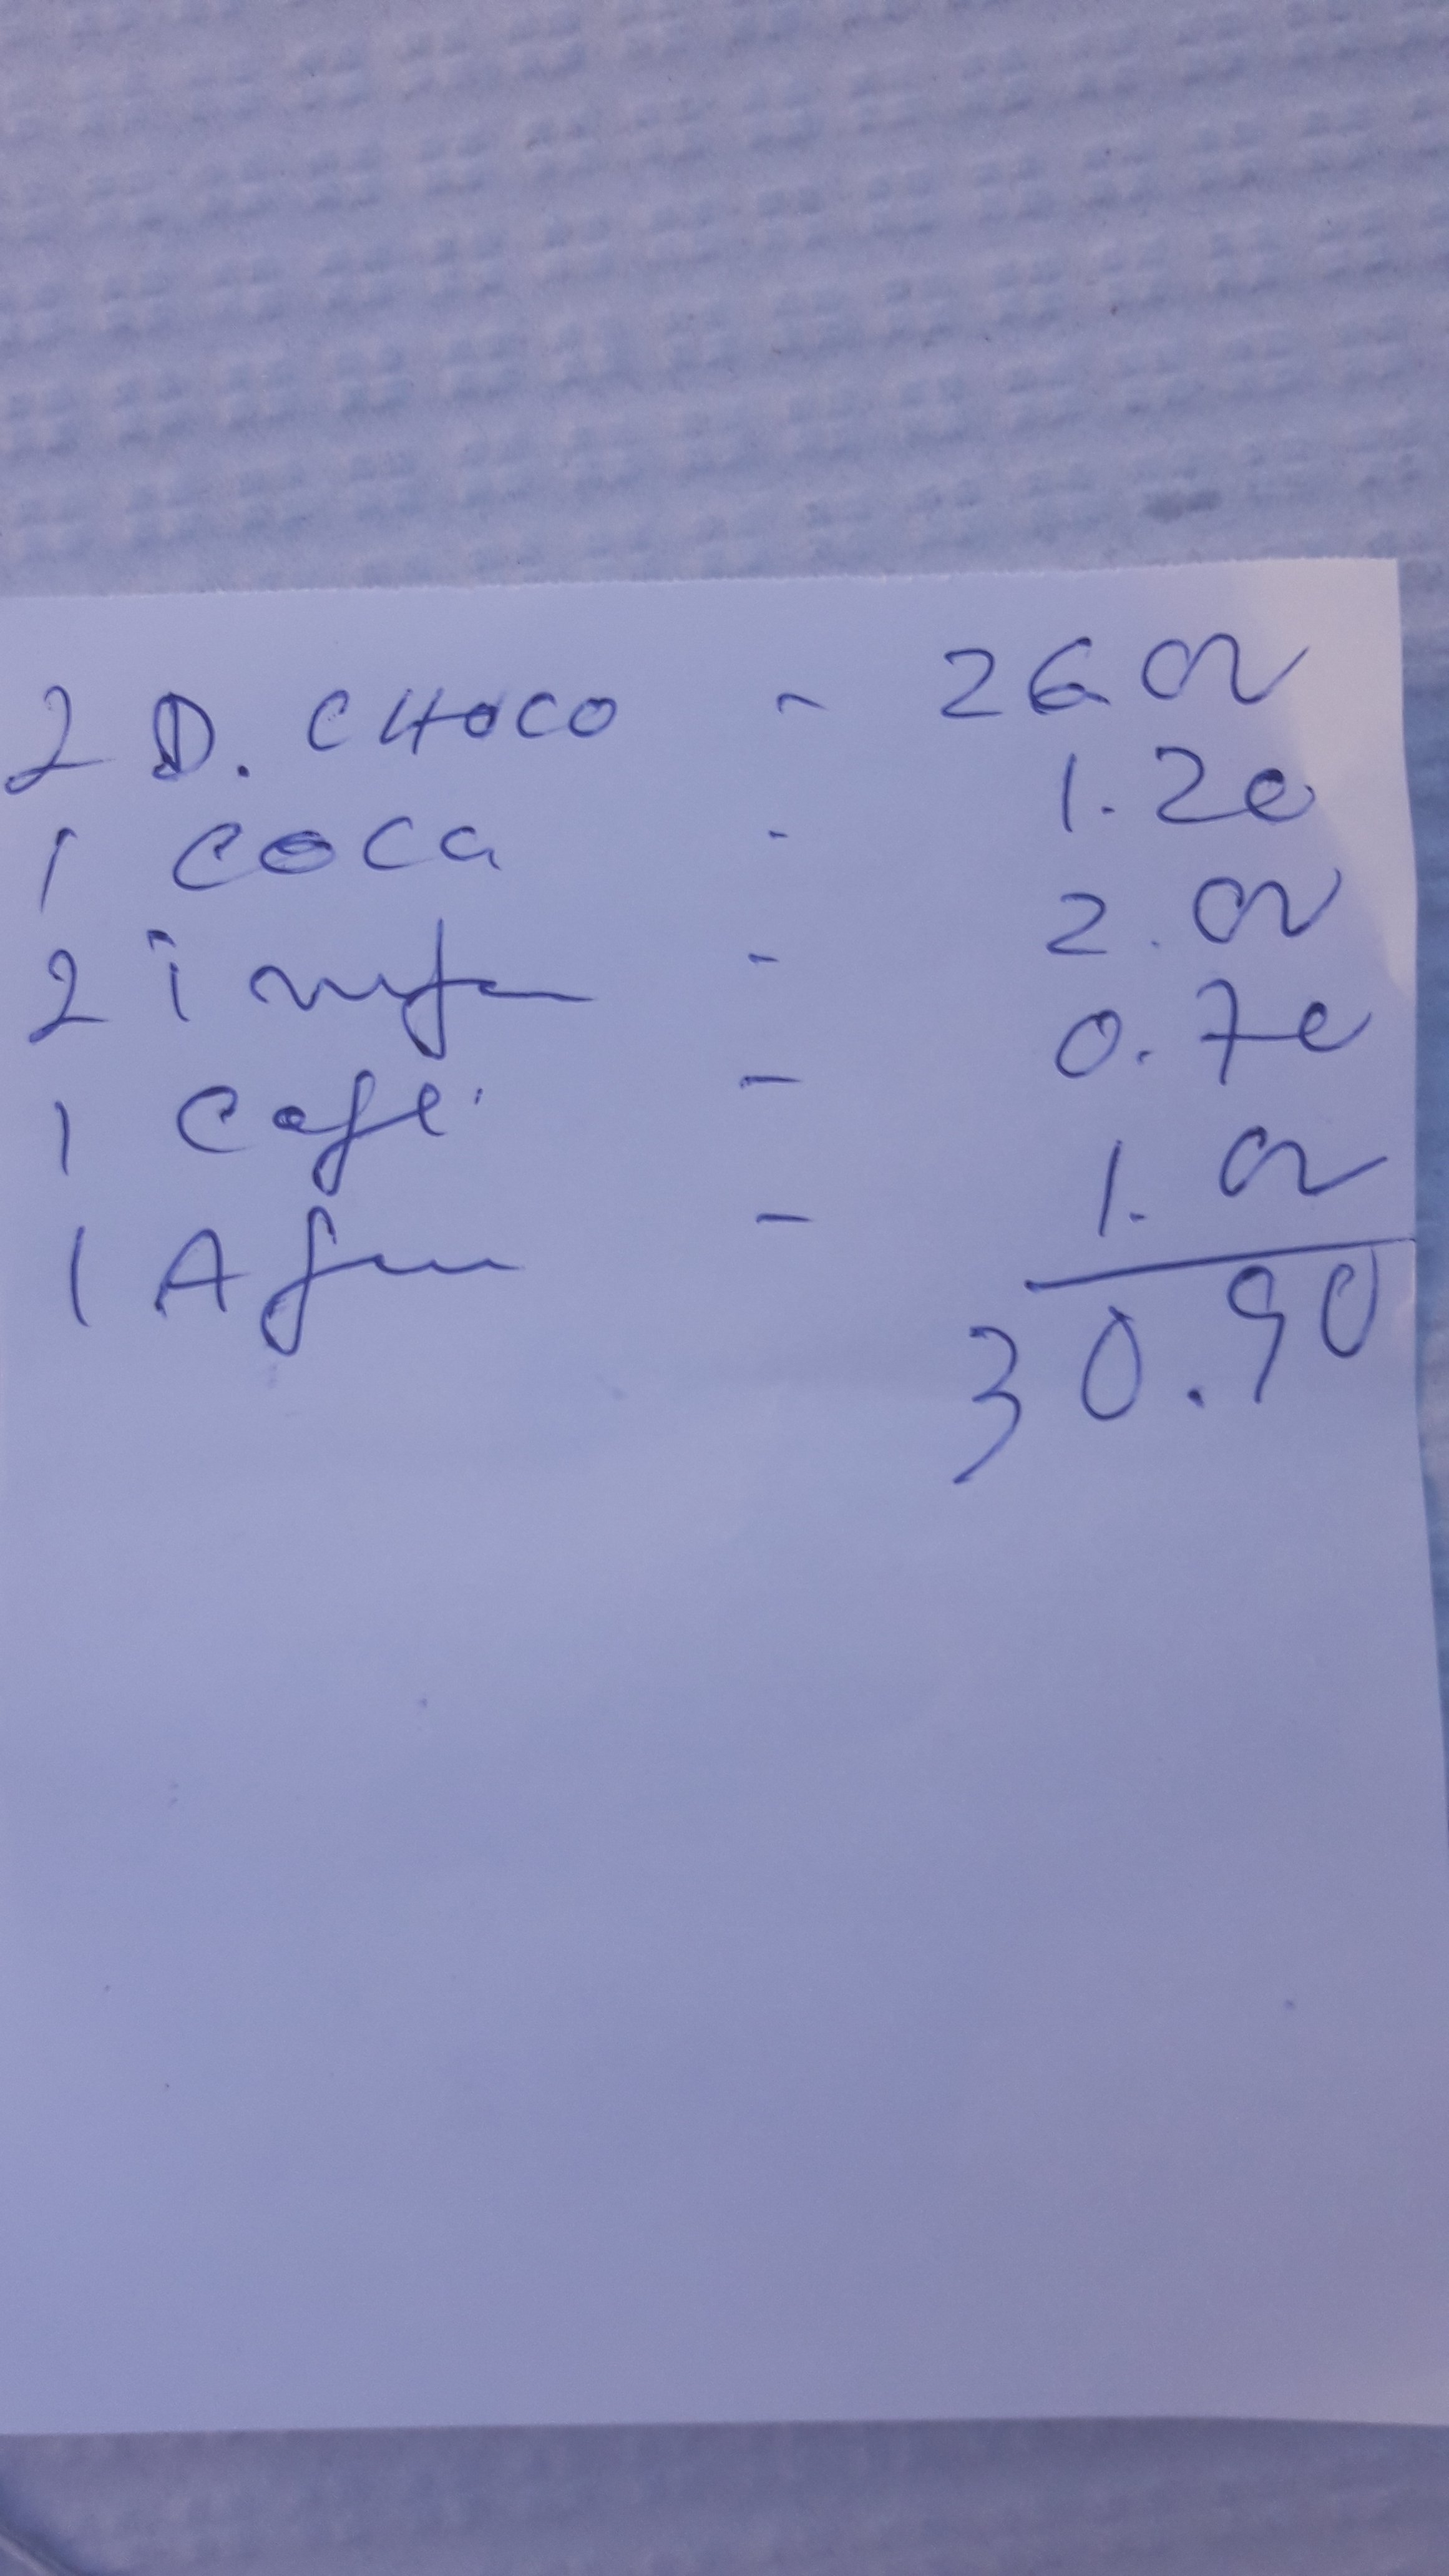 2 D. CHOCO - 26.00
1 COCA - 1.20
2 infu - 2.00
1 Café - 0.70
1 Agua - 1.00
30.90